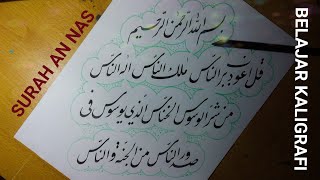 SURAH AN NAS
بسم الله الرحمن الرحيم
قل اعوذ برب الناس ملك الناس اله الناس
من شر الوسواس الخناس الذي يوسوس في
صدور الناس من الجنة والناس
BELAJAR KALIGRAFI